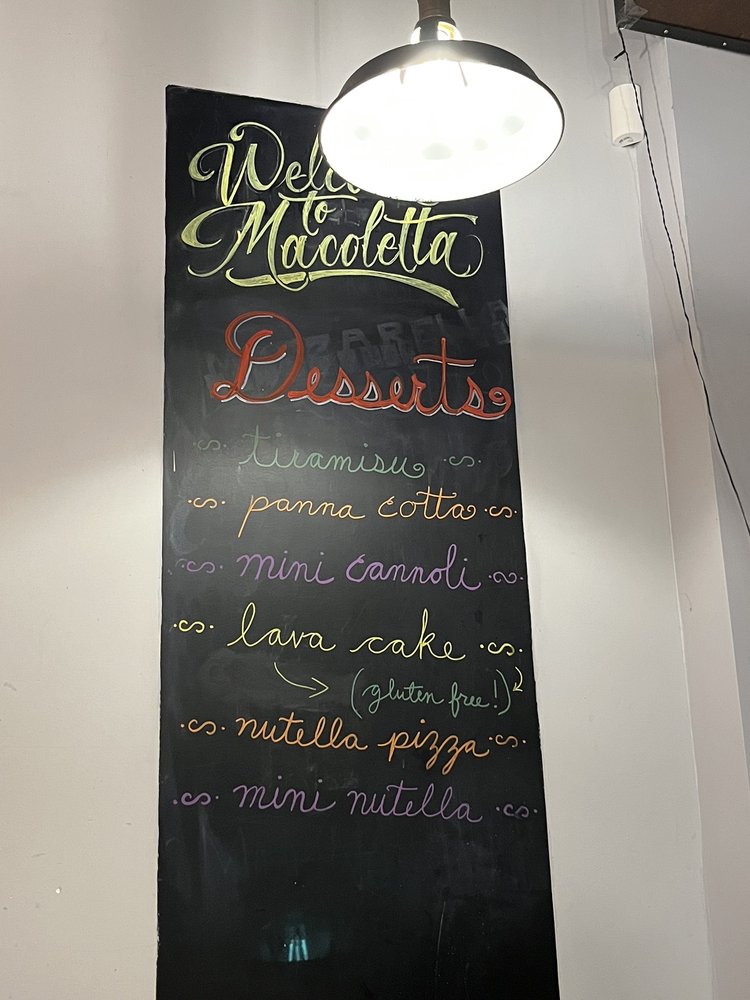 to
Macoletta
Desserts
tiramisu
panna cotta
mini cannoli
lava cake
(gluten free!)
nutella pizza
mini nutella